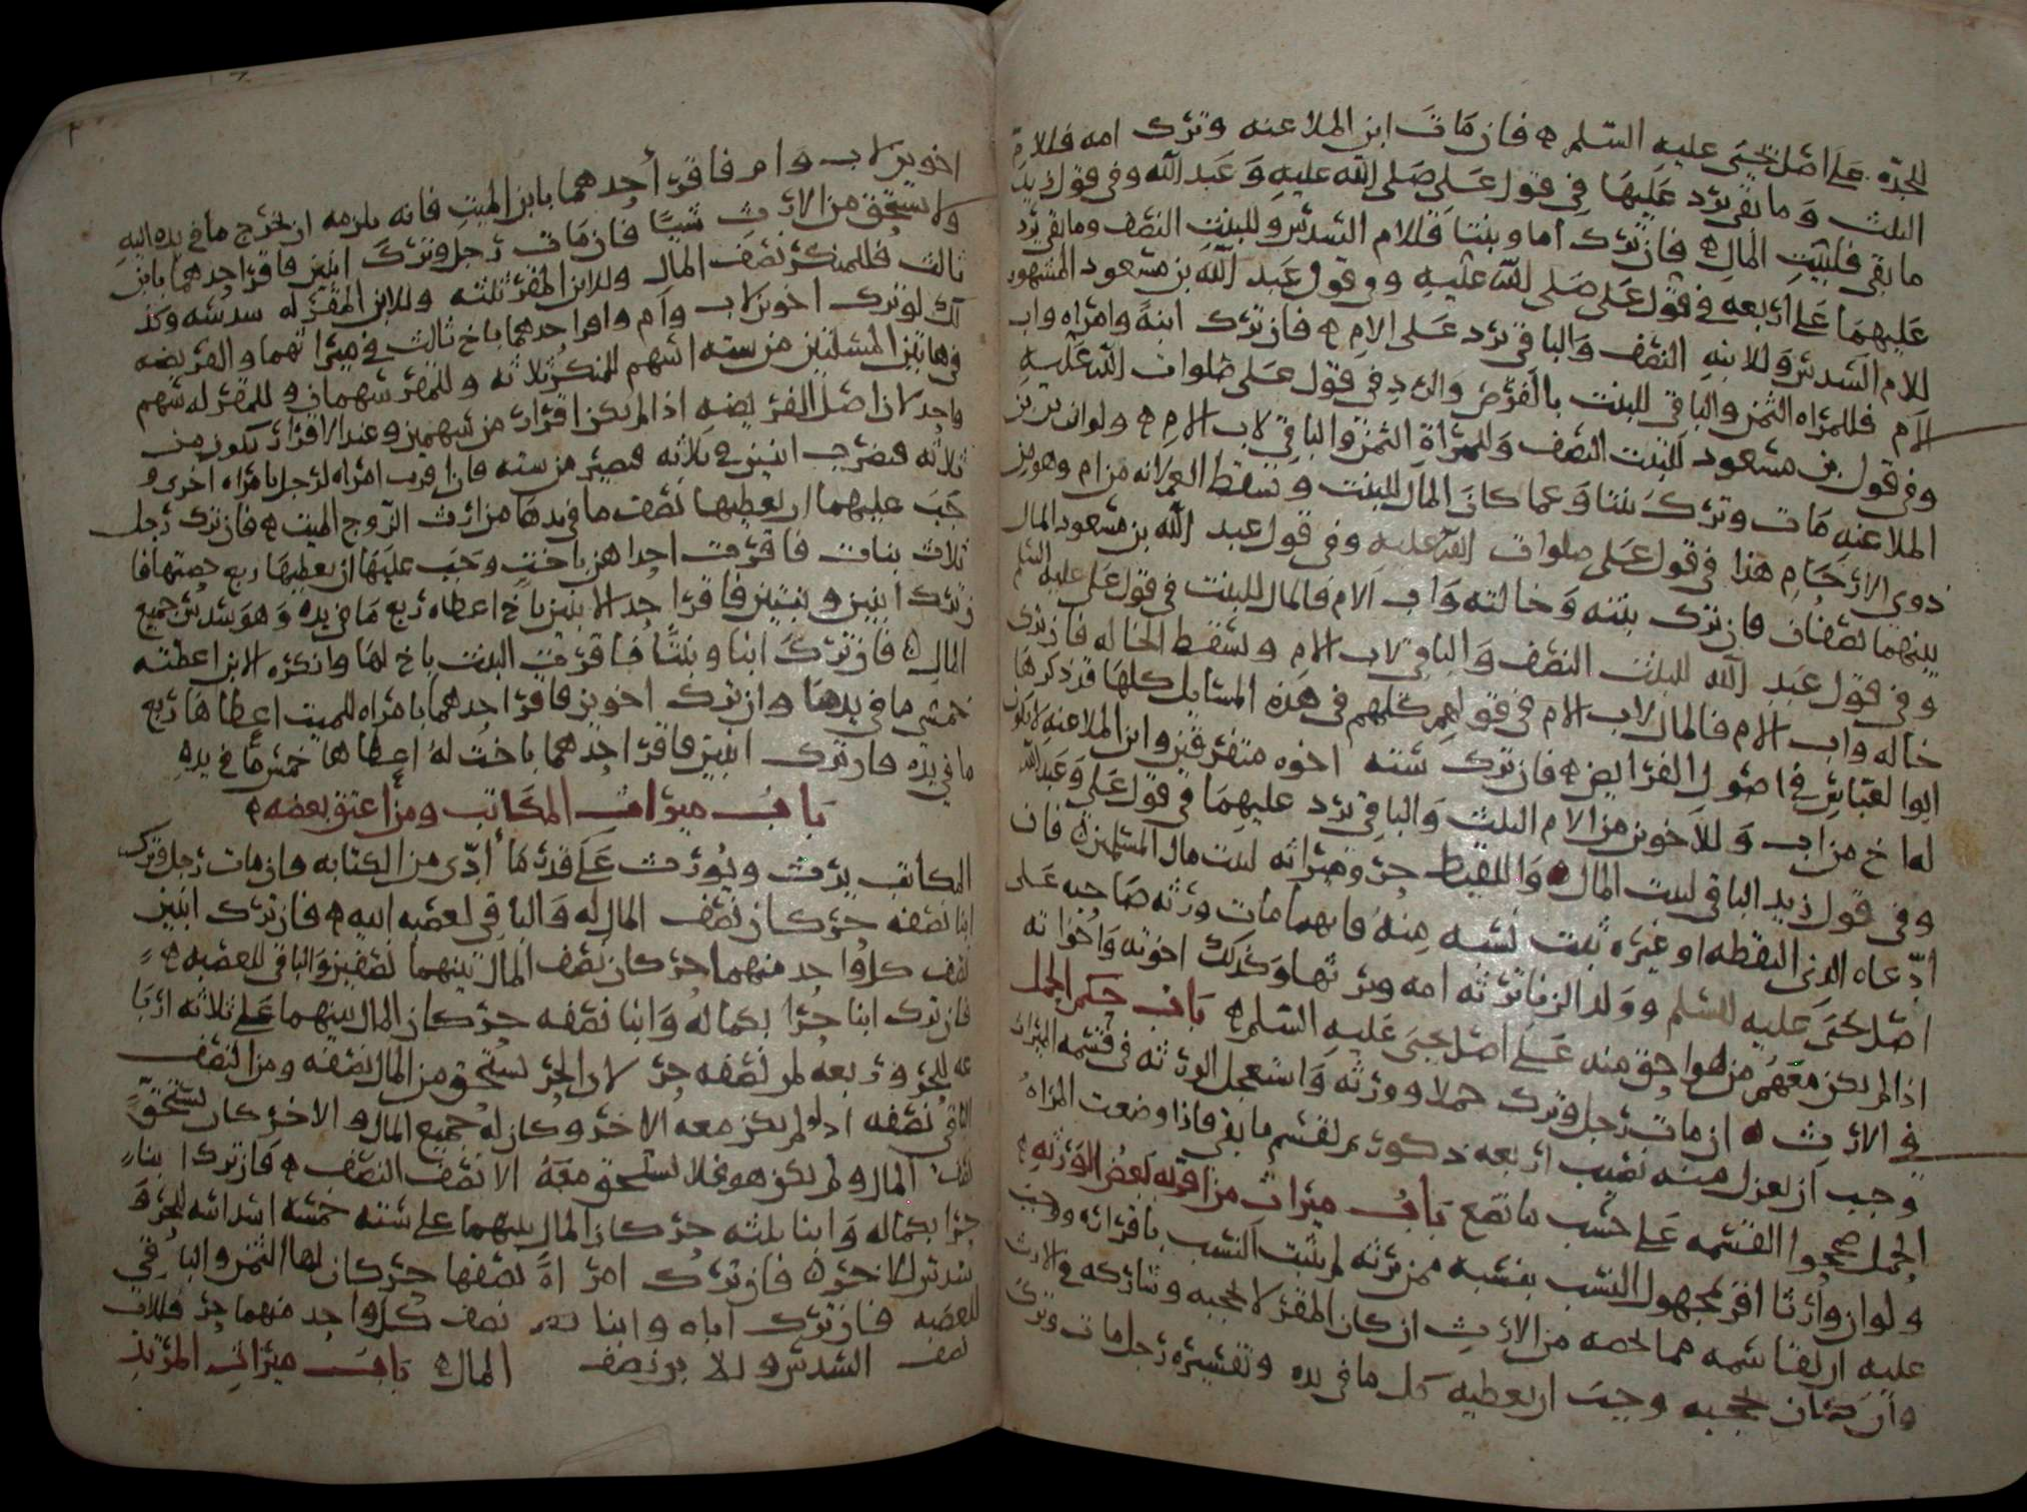 للجدة على اصل يحيى عليه السلم ه فان مات ابن الملاعنه وترك امه فللام
الثلث وما بقي يرد عليها في قول علي صلى الله عليه وعبد الله وفي قول زيد
ما بقي فلبيت المال ه فان ترك اما وبنتا فللام السدس وللبنت النصف وما بقي يرد
عليهما على اربعه في قول علي صلى الله عليه وفي قول عبد الله بن مسعود المشهور
للام السدس وللابنه النصف والباقي يرد على الام ه فان ترك ابنة وامراه واب
الام فللمراه الثمن والباقي للبنت بالفرض والرد في قول علي صلوات الله عليه
وفي قول بن مسعود للبنت النصف وللمراة الثمن والباقي لاب الام ه ولو ان بن بن
الملاعنه مات وترك بنتا وعما كان المال للبنت وسقط العم لانه من ام وهو من
ذوي الارحام هذا في قول علي صلوات الله عليه وفي قول عبد الله بن مسعود المال
بينهما نصفان فان ترك بنته وخالته واب الام فالمال للبنت في قول علي عليه السلم
وفي قول عبد الله للبنت النصف والباقي لاب الام وتسقط الخاله فان ترك
خاله واب الام فالمال لاب الام في قولهم كلهم في هذه المسايل كلها قد ذكرها
ابوا لعباس في اصول الفرايض ه فان ترك سته اخوه متفرقين وابن الملاعنه لا يكون
له اخ من اب وللاخوين من الام الثلث والباقي يرد عليهما في قول علي وعبد الله
وفي قول زيد الباقي لبيت المال ه واللقيط حر وميراثه لبيت مال المسلمين ه فان
ادعاه الذي التقطه او غيره ثبت نسبه منه فايهما مات ورثه صاحبه على
اصل يحيى عليه السلم وولد الزنا ترثه امه ويرثها وكذلك اخوته واخواته
اذا لم يكن معهم من هو احق منه على اصل يحيى عليه السلم ه باب حكم الحمل
في الارث ه ان مات رجل وترك حملا وورثه واستعجل الورثه في قسمه الميراث
وجب ان يعزل منه نصيب اربعه ذكور ثم يقسم ما بقي فاذا وضعت المراة
الحمل صححوا القسمه على حسب ما تضع باب ميراث من اقر به بعض الورثه ه
ولو ان وارثا اقر لمجهول النسب بنسبه ممن يرثه لم يثبت النسب باقراره ووجب
عليه ان يقاسمه مما لحصه من الارث ان كان المقر لا يحجبه وشاركه في الارث
وان كان يحجبه وجب ان يعطيه كل ما في يده وتفسيره رجل مات وترك
اخوين لاب وام فاقر احدهما بابن الميت فانه يلزمه ان يخرج ما في يده اليه
ولا يستحق من الارث شيئا فان مات رجل وترك ابنين فاقر احدهما بابن
ثالث فللمنكر نصف المال وللابن المقر ثلثه وللابن المقر له سدسه وكذ
لك لو ترك اخوين لاب وام واقر احدهما باخ ثالث في ميراثهما والفريضه
في هاتين المسلتين من سته اسهم للمنكر ثلاثه وللمقر سهمان وللمقر له سهم
واحد لان اصل الفريضه اذا لم يكن اقرار من سهمين وعند الاقرار يكون من
ثلاثه فتضرب اثنين في ثلاثه فتصير من سته فان اقرت امراه لرجل بامراه اخرى و
جب عليهما ان يعطيها نصف ما في يدها من ارث الزوج الميت ه فان ترك رجل
ثلاث بنات فاقرت احداهن باخت وجب عليها ان يعطيها ربع حصتها فا
ن ترك ابنين وبنتين فاقر احد الابنين باخ اعطاه ربع ما في يده وهو سدس جميع
المال ه فان ترك ابنا وبنتا فاقرت البنت باخ لها وانكره الابن اعطته
خمسي ما في يدها وان ترك اخوين فاقر احدهما بامراه للميت اعطاها ربع
ما في يده فان ترك ابنين فاقر احدهما باخت له اعطاها خمس ما في يده
باب ميراث المكاتب ومن اعتق بعضه ه
المكاتب يرث ويورث على قدر ما ادى من الكتابه فان مات رجل وترك
ابنا نصفه حر كان نصف المال له والباقي لعصبه ابيه ه فان ترك ابنين
نصف كل واحد منهما حر كان نصف المال بينهما نصفين والباقي للعصبه ه
فان ترك ابنا حرا بكماله وابنا نصفه حر كان المال بينهما على ثلاثه اربا
عه للحر وربعه لمن نصفه حر لان الحر يستحق من المال نصفه ومن النصف
الباقي نصفه اذ لو لم يكن معه الاخر وكان له جميع المال والاخر كان يستحق
نصف المال ولم يكن هو فلا يستحق معه الا نصف النصف ه فان ترك ابنا
حرا بكماله وابنا ثلثه حر كان المال بينهما على سته خمسه اسداسه للحر و
سدس للاخر ه فان ترك امراة نصفها حر كان لها الثمن والباقي
للعصبه فان ترك اباه وابنا نصف كل واحد منهما حر فللاب
نصف السدس وللابن نصف المال ه باب ميراث المرتد